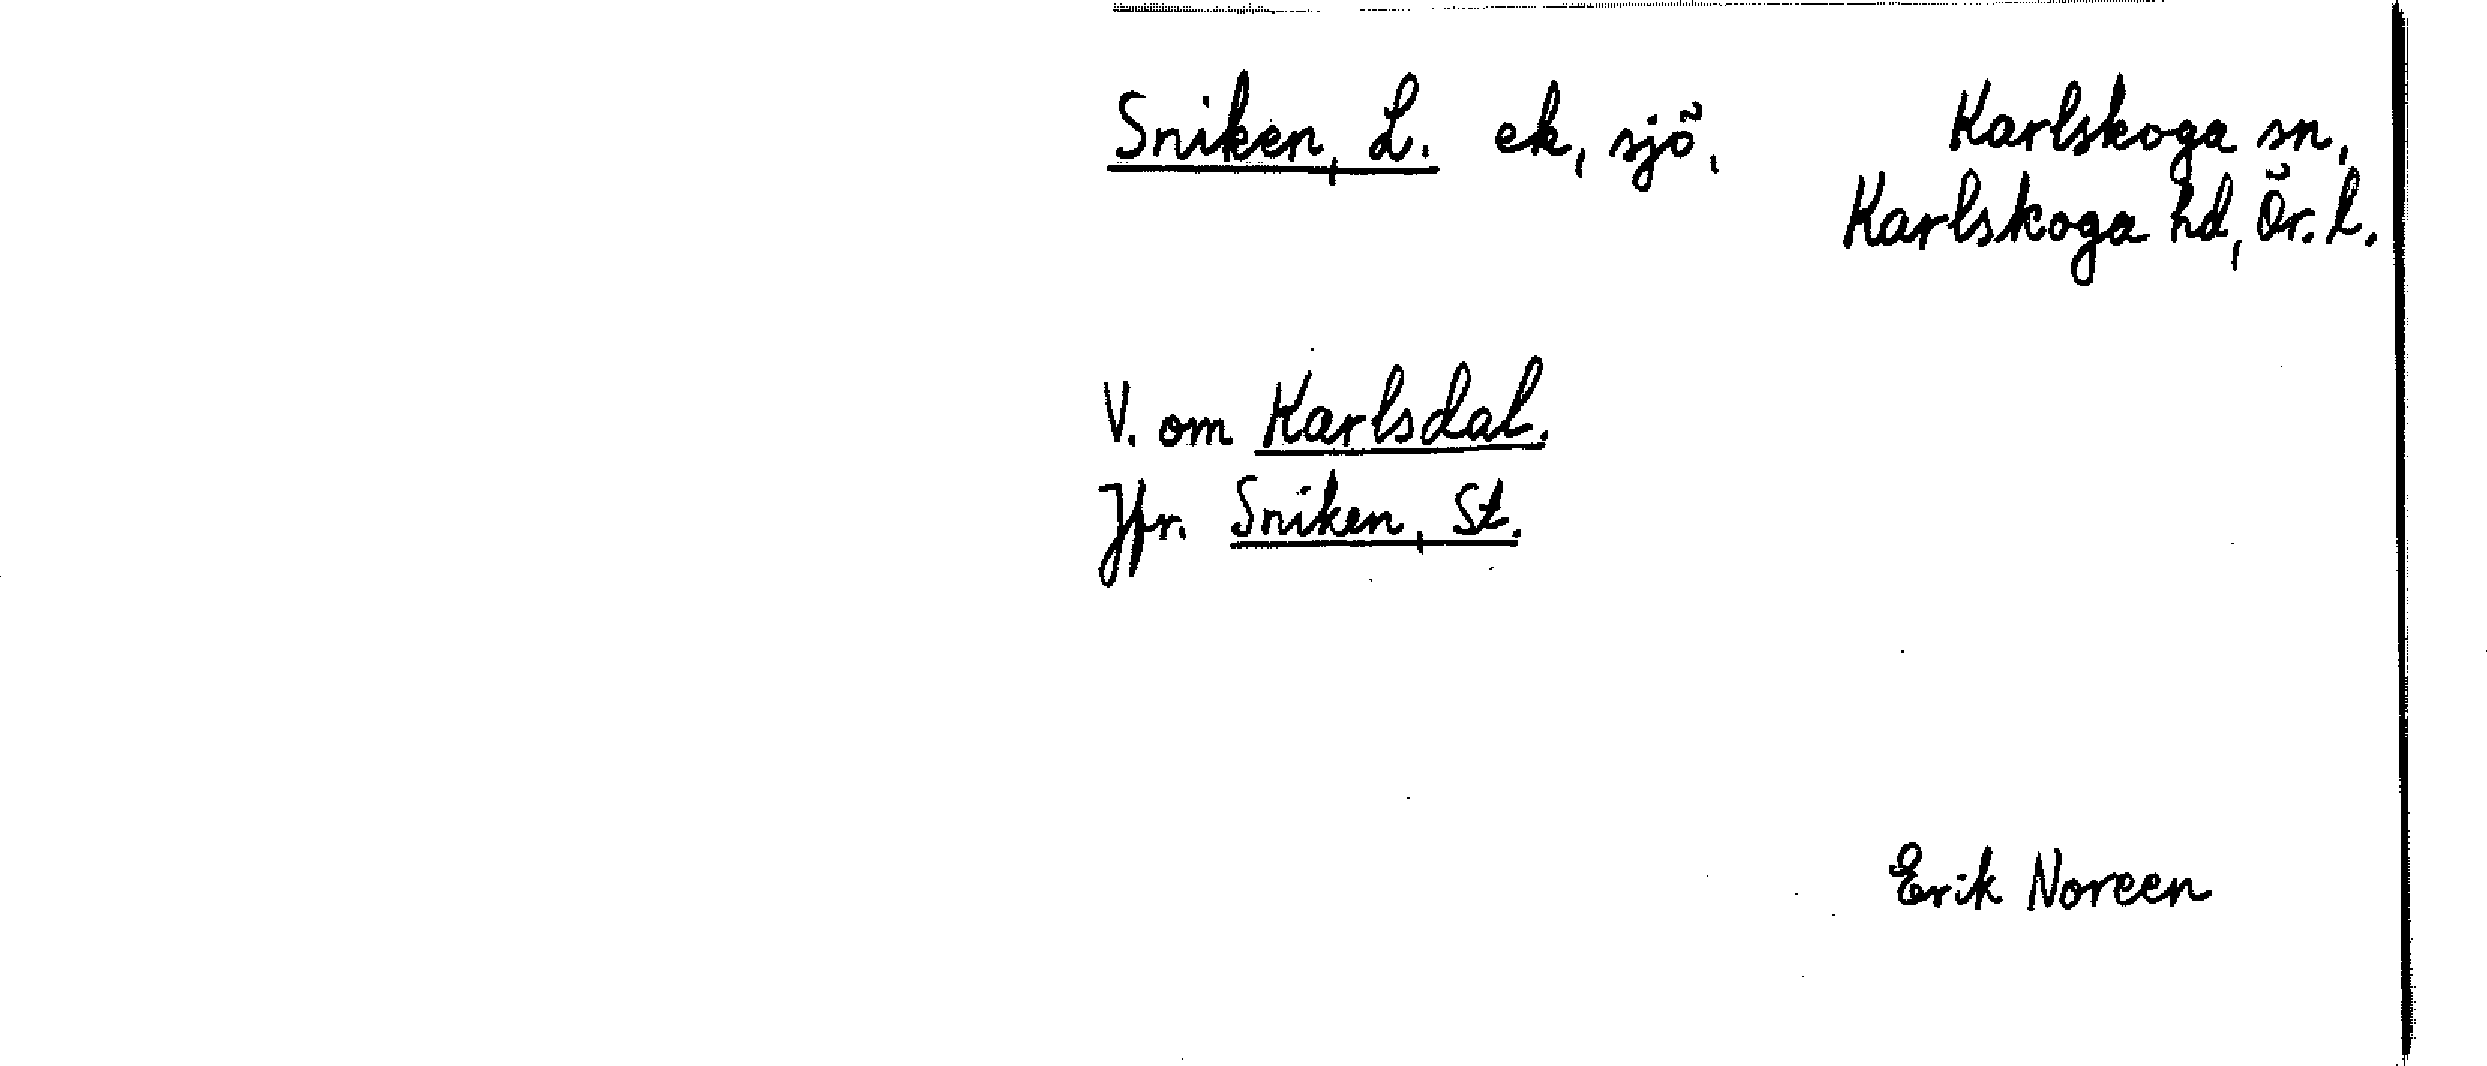 Sniken, L. ek, sjö, Karlskoga sn,
Karlskoga hd, Ör. l.
V. om Karlsdal.
Jfr. Sniken, St.
Erik Noreen